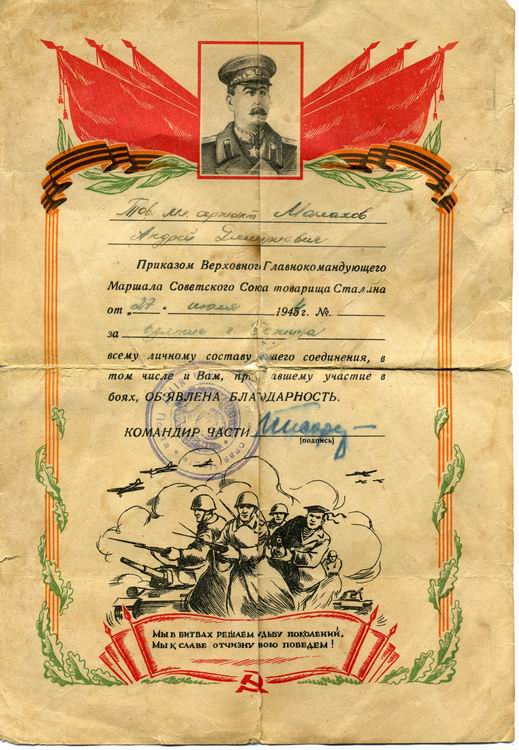 Тов. мл. сержант Малахов
Андрей Дмитриевич
Приказом Верховного Главнокомандующего
Маршала Советского Союза товарища Сталина
от „27 “ июля 194 г. №
за взятие г.
всему личному составу шего соединения, в
том числе и Вам, пр авшему участие в
боях, ОБ'ЯВЛЕНА БЛАГОДАРНОСТЬ.
КОМАНДИР ЧАСТИ
[подпись]
Мы в битвах решаем судьбу поколений,
Мы к славе отчизну свою поведем!